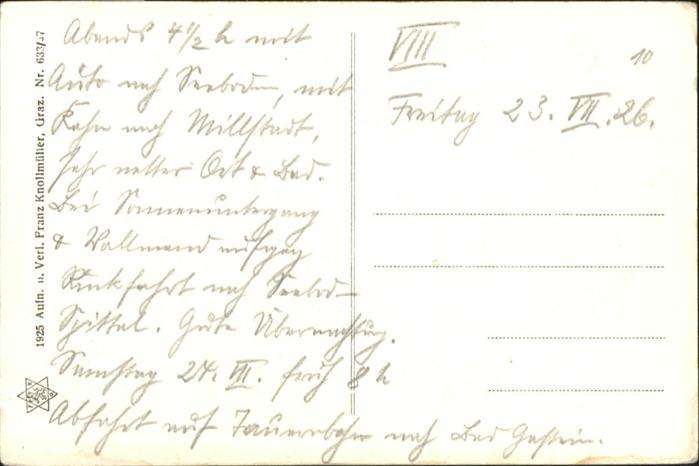 Abends 4 1/2 h mit
Auto nach Seeboden, mit
Kahn nach Millstadt,
sehr netter Ort & Bad.
Bei Sonnenuntergang
& Vollmondaufgang
Rückfahrt nach Seebod-
Spittal. Gute Übernachtung.
Samstag 24. VII. früh 8 h
Abfahrt auf Tauernbahn nach Bad Gastein.
VIII
10
Freitag 23. VII. 26.
1925 Aufn. u. Verl. Franz Knollmüller, Graz. Nr. 633/37